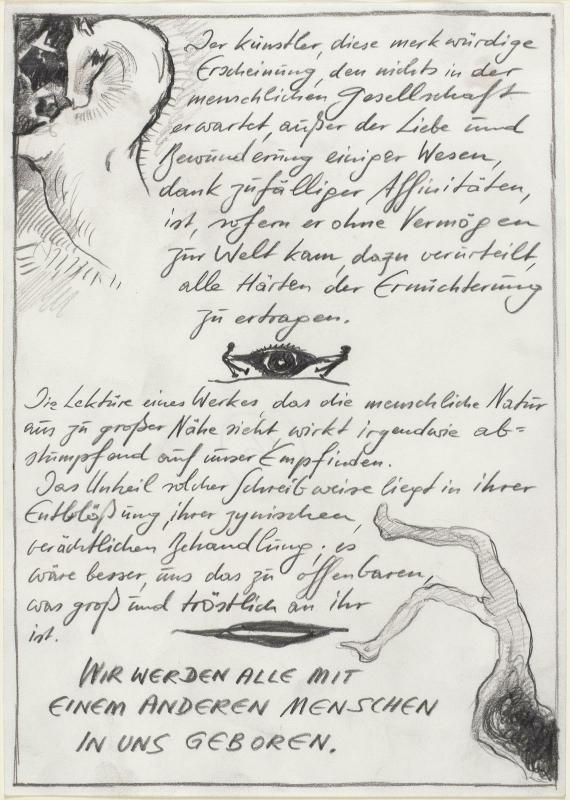 Der Künstler, diese merkwürdige
Erscheinung, den nichts in der
menschlichen Gesellschaft
erwartet, außer der Liebe und
Bewunderung einiger Wesen,
dank zufälliger Affinitäten,
ist, sofern er ohne Vermögen
zur Welt kam, dazu verurteilt,
alle Härten der Ernüchterung
zu ertragen.
Die Lektüre eines Werkes, das die menschliche Natur
aus zu großer Nähe sieht, wirkt irgendwie ab=
stumpfend auf unser Empfinden.
Das Unheil solcher Schreibweise liegt in ihrer
Entblößung, ihrer zynischen,
verächtlichen Behandlung; es
wäre besser, uns das zu offenbaren,
was groß und tröstlich an ihr
ist.
WIR WERDEN ALLE MIT
EINEM ANDEREN MENSCHEN
IN UNS GEBOREN.